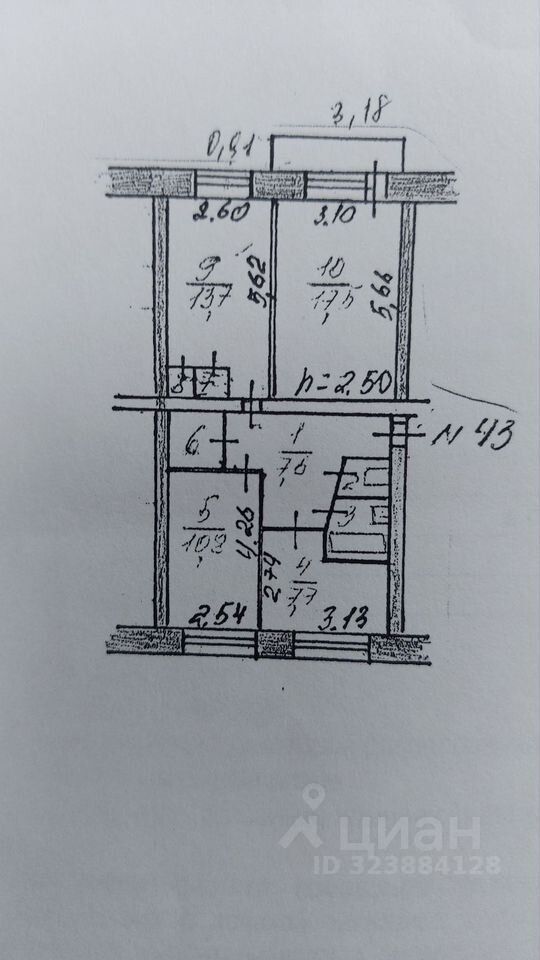 3,18
0,81
2.60
3.10
9
13,7
5,62
10
17,5
5,66
8
7
h=2.50
6
1
7,6
N 43
2
5
10,8
4.26
3
2.74
4
7,7
2.54
3.13
циан
ID 323884128